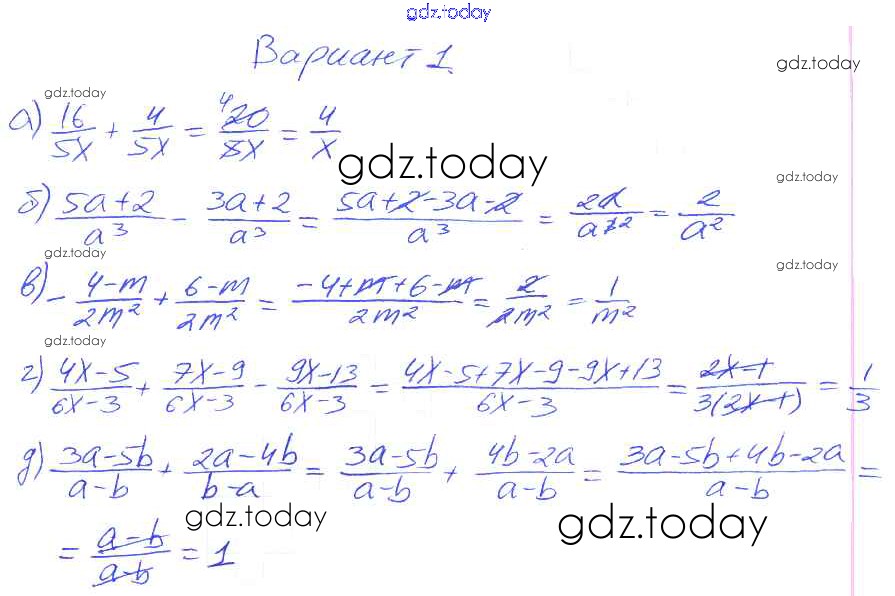 gdz.today
Вариант 1.
gdz.today
gdz.today
а) 16/5x + 4/5x = 4 20/5x = 4/x
gdz.today
gdz.today
б) 5a+2/a³ - 3a+2/a³ = 5a+2-3a-2/a³ = 2a/a³² = 2/a²
gdz.today
gdz.today
в) - 4-m/2m² + 6-m/2m² = -4+m+6-m/2m² = 2/2m² = 1/m²
gdz.today
г) 4x-5/6x-3 + 7x-9/6x-3 - 9x-13/6x-3 = 4x-5+7x-9-9x+13/6x-3 = 2x-1/3(2x-1) = 1/3
д) 3a-5b/a-b + 2a-4b/b-a = 3a-5b/a-b + 4b-2a/a-b = 3a-5b+4b-2a/a-b =
gdz.today
gdz.today
= a-b/a-b = 1